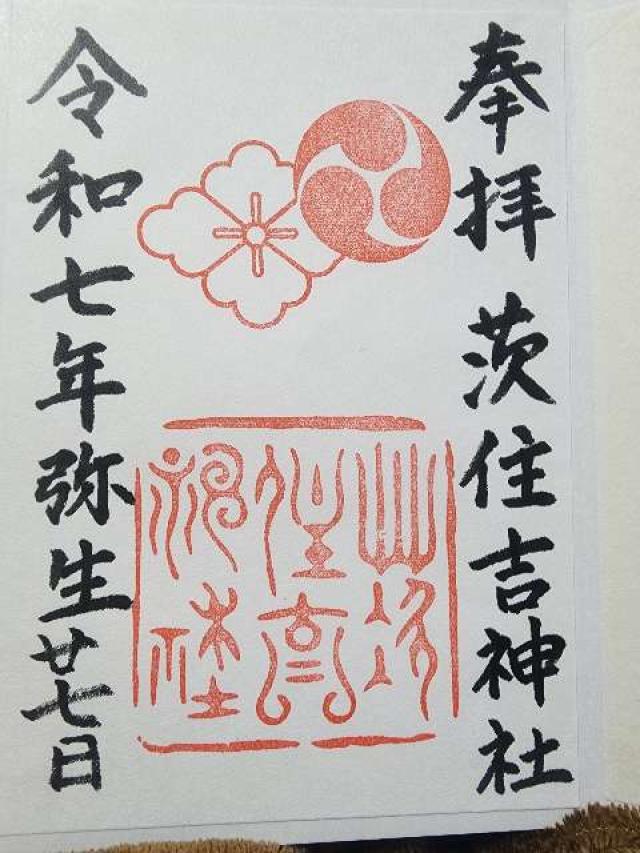 奉拝 茨住吉神社
茨
住吉
神社
令和七年弥生廿七日